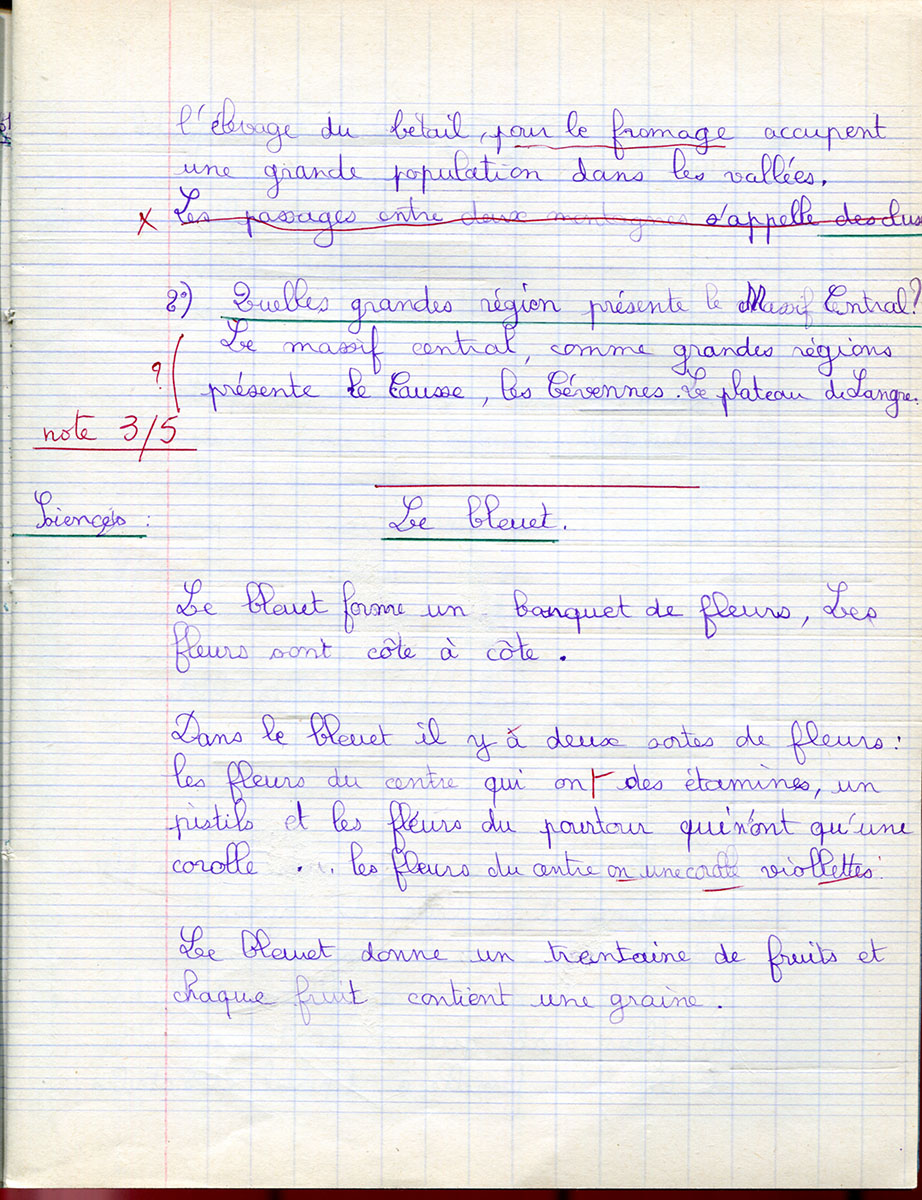 l'élevage du bétail, pour le fromage accupent
une grande population dans les vallées.
x Les passages entre deux montagnes s'appelle des clus
2°) Quelles grandes région présente le Massif Central?
Le massif central, comme grandes régions
? présente le Causse, les Cévennes. Le plateau de Langre.
note 3/5
Sciences : Le bleuet.
Le bleuet forme un banquet de fleurs, Les
fleurs sont côte à côte.
Dans le bleuet il y à deux sortes de fleurs :
les fleurs du centre qui ont des étamines, un
pistils et les fleurs du pourtour qui n'ont qu'une
corolle ... les fleurs du centre on une corolle viollettes.
Le bleuet donne un trentaine de fruits et
chaque fruit contient une graine.